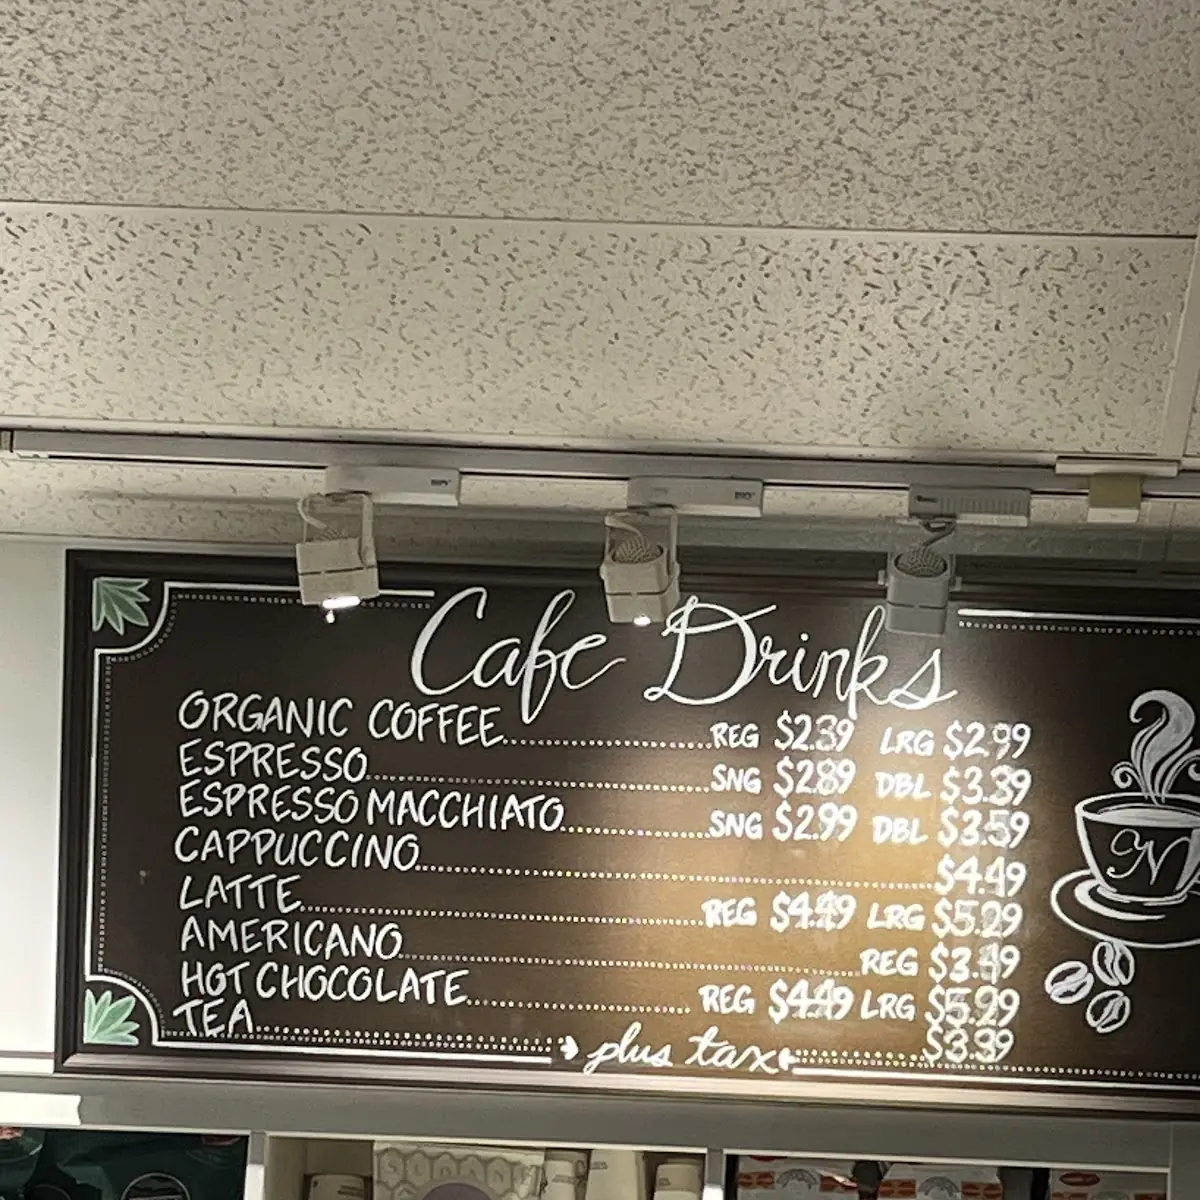 Cafe Drinks
ORGANIC COFFEE REG $2.39 LRG $2.99
ESPRESSO SNG $2.89 DBL $3.39
ESPRESSO MACCHIATO SNG $2.99 DBL $3.59
CAPPUCCINO $4.49
LATTE REG $4.49 LRG $5.29
AMERICANO REG $3.49
HOT CHOCOLATE REG $4.49 LRG $5.99
TEA $3.39
plus tax
N